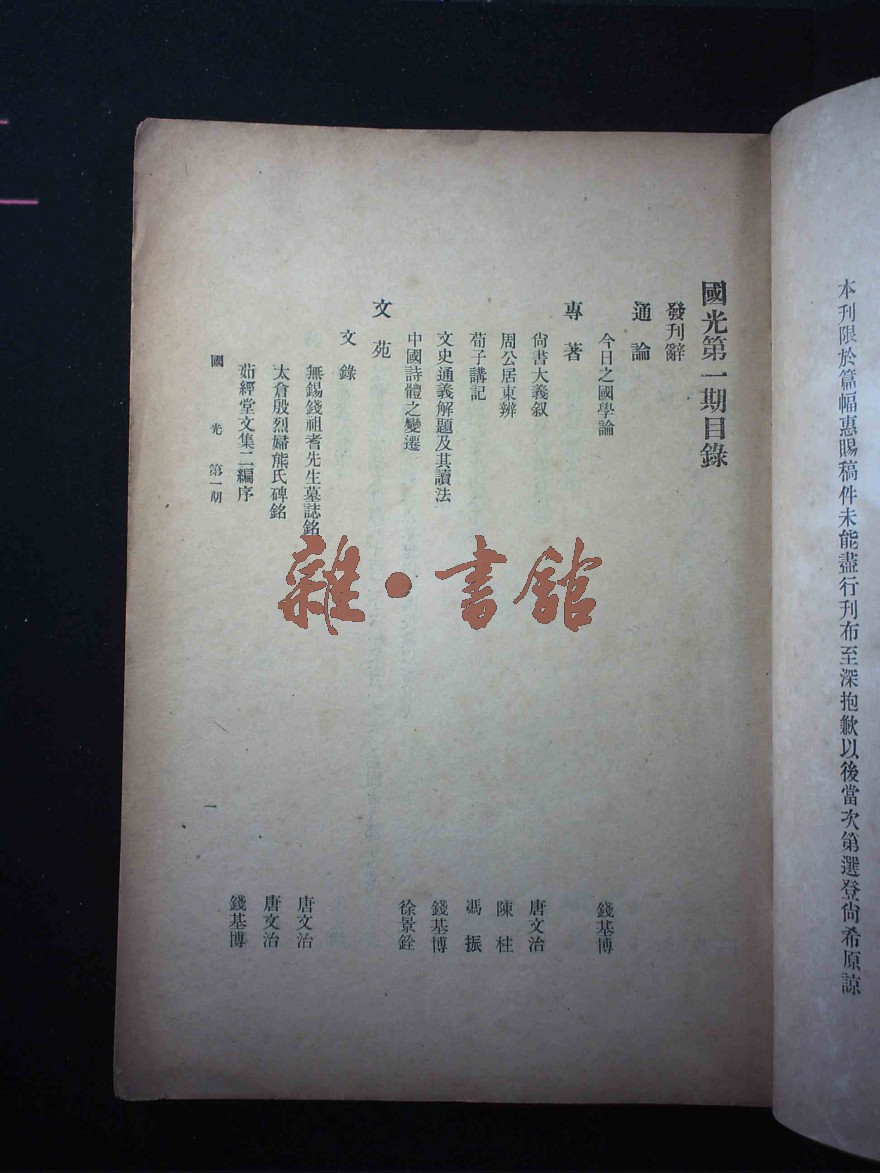 本刊限於篇幅惠賜稿件未能盡行刊布至深抱歉以後當次第選登尙希原諒
國光第一期目錄
發刊辭
通論
今日之國學論 錢基博
專著
尙書大義叙 唐文治
周公居東辨 陳柱
荀子講記 馮振
文史通義解題及其讀法 錢基博
中國詩體之變遷 徐景銓
文苑
文錄
無錫錢祖耆先生墓誌銘 唐文治
太倉殷烈婦熊氏碑銘 唐文治
茹經堂文集二編序 錢基博
國光 第一期 一
雜·書館